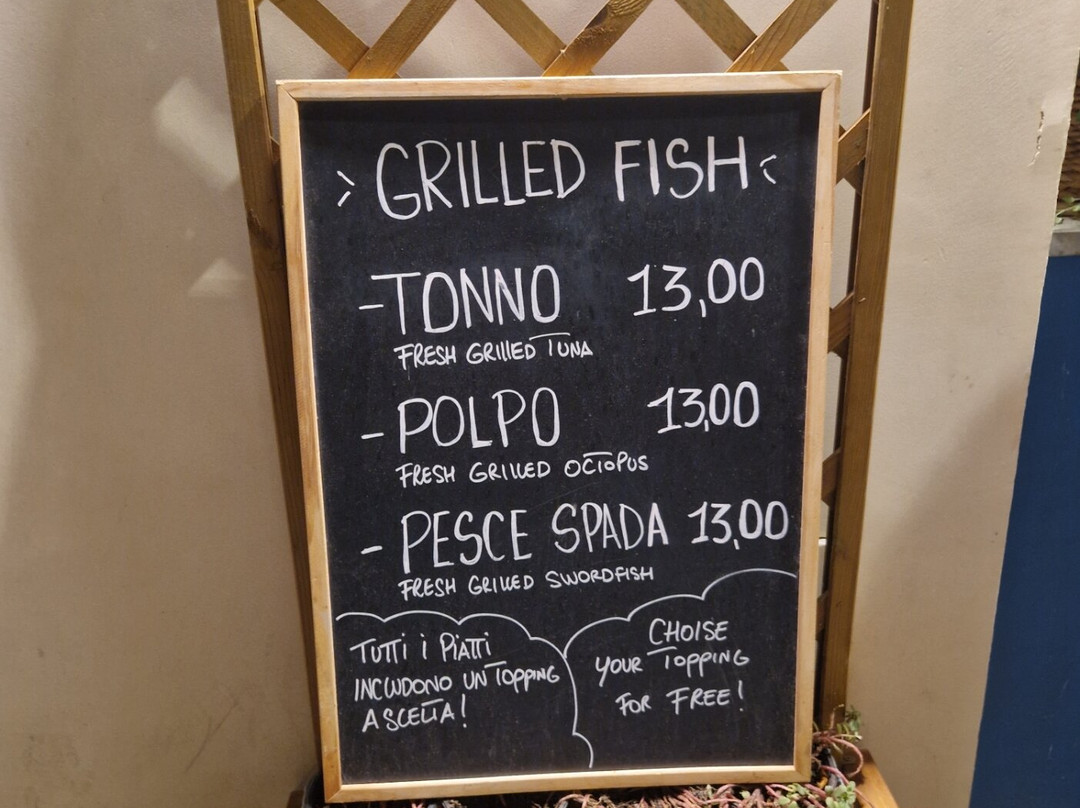 GRILLED FISH
- TONNO 13,00
FRESH GRILLED TUNA
- POLPO 13,00
FRESH GRILLED OCTOPUS
- PESCE SPADA 13,00
FRESH GRILLED SWORDFISH
TUTTI i PiATTi
INCLUDONO UN TOPPING
A SCELTA!
CHOISE
YOUR TOPPING
FOR FREE!